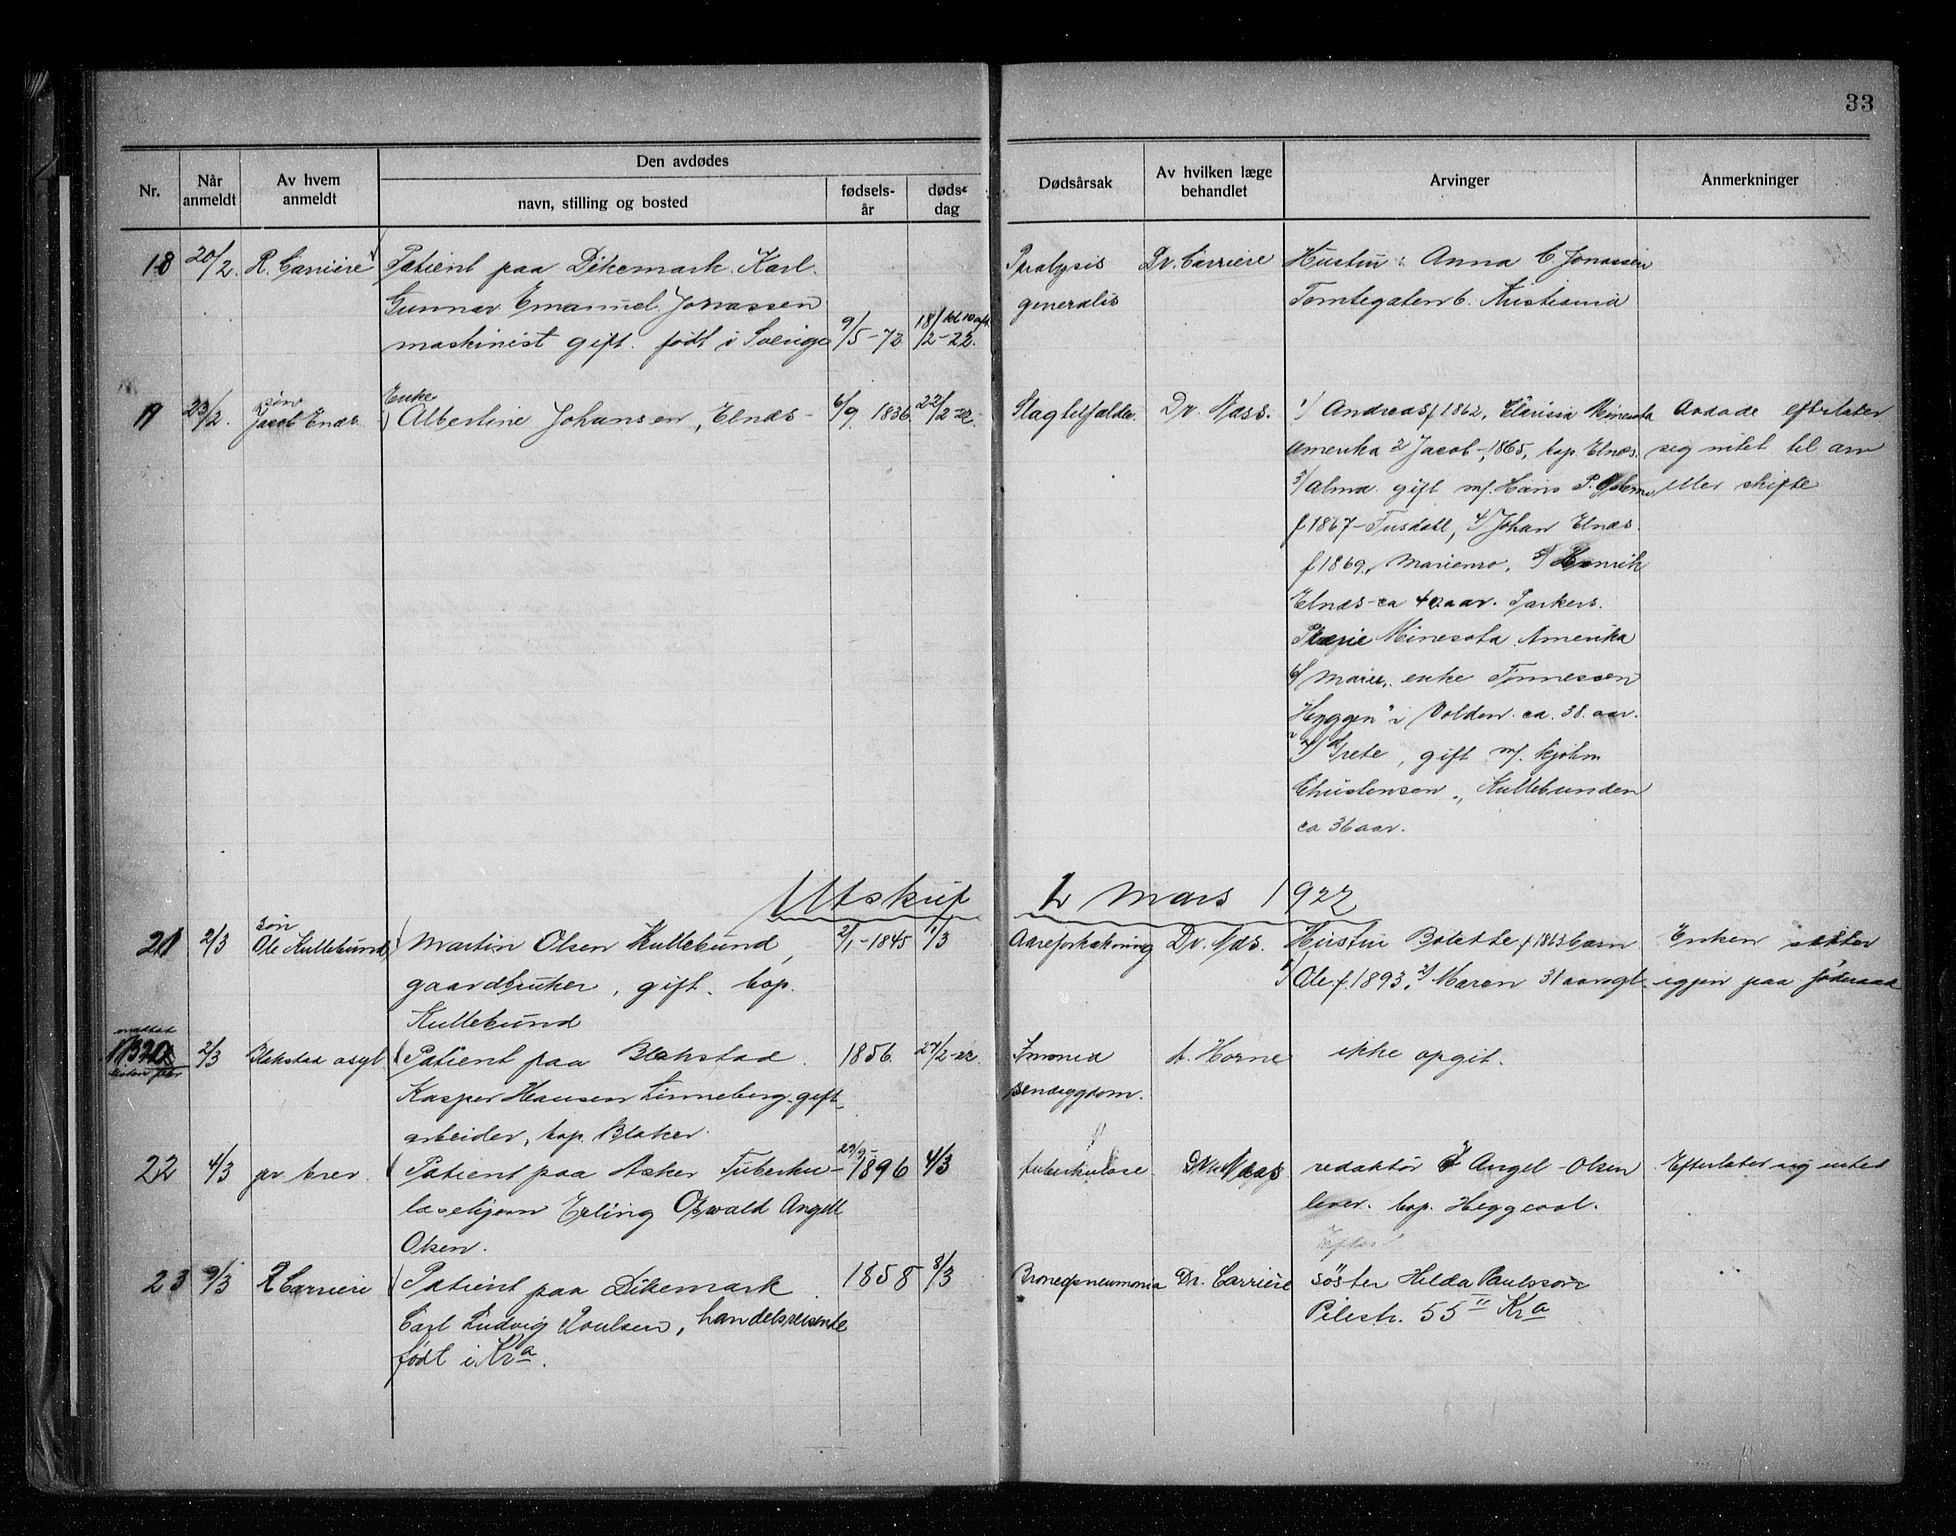 33
Nr.
Når anmeldt
Av hvem anmeldt
Den avdødes
navn, stilling og bosted
fødsels-år
døds-dag
Dødsårsak
Av hvilken læge behandlet
Arvinger
Anmerkninger
18 20/2. R. Carriere Patient paa Dikemark. Karl Paralysis Dr. Carriere Hustru: Anna C Jonassen
Gunnar Emanuel Jonassen generalis Tomtegaten 6. Kristiania
maskinist gift. født i Sverige 9/5-72 18/2-22. kl 10 aft.
19 23/2. søn Jacob Enæs Enke Albertine Johansen, Elnæs 6/9 1836. 22/2-22. Slagtilfælde Dr. Næss. 1/ Andreas f 1862, Minesota Avdøde efterlater
Amerika 2 Jacob-, 1865, bop. Elnæs. sig intet til arv
3/ Alma gift m/ Hans P. eller skifte
f 1867- Fusdahl, 4/ Johan Elnæs
f 1869, Mariero, 5/ Henrik
Elnæs-ca 40 aar. Parkers
Prærie Minesota Amerika
6/ Marie, enke Tønnessen
Heggen i Volden ca. 38. aar.
7/ Grete, gift m/
Christensen, Kullebunden
ca 36 aar.
Utskrift 1 mars 1922
21 2/3 søn Ole Kullebund Martin Olsen Kullebund, 2/1-1845 1/3 Aareforkalkning Dr. Næs. Hustru Bolette f 1863 barn Enken sitter
gaardbruker, gift. bop. 1/ Ole f. 1893, 2/ Maren 31 aar ugt. igjen paa føderaad
Kullebund
20 2/3 Blakstad asyl Patient paa Blakstad. 1856 27/2-22. A. Horne ikke opgit.
Kasper Hansen Linneberg gift
arbeider, bop. Blaker.
22 4/3 pr brev. Patient paa Asker Tuberku- 29/9-1896 4/3 tuberkulose Dr. Næss redaktør Angel-Olsen Efterlater sig intet
losehjem Erling Oswald Angell lever. bop. Heggedal.
Olsen.
23 9/3 R Carriere Patient paa Dikemark 1858 8/3 Broncopneumonia Dr. Carriere søster Hilda Paulsson
Carl Ludvig Poulsen, handelsreisende Pilestr. 55 II Kra
født i Kra.